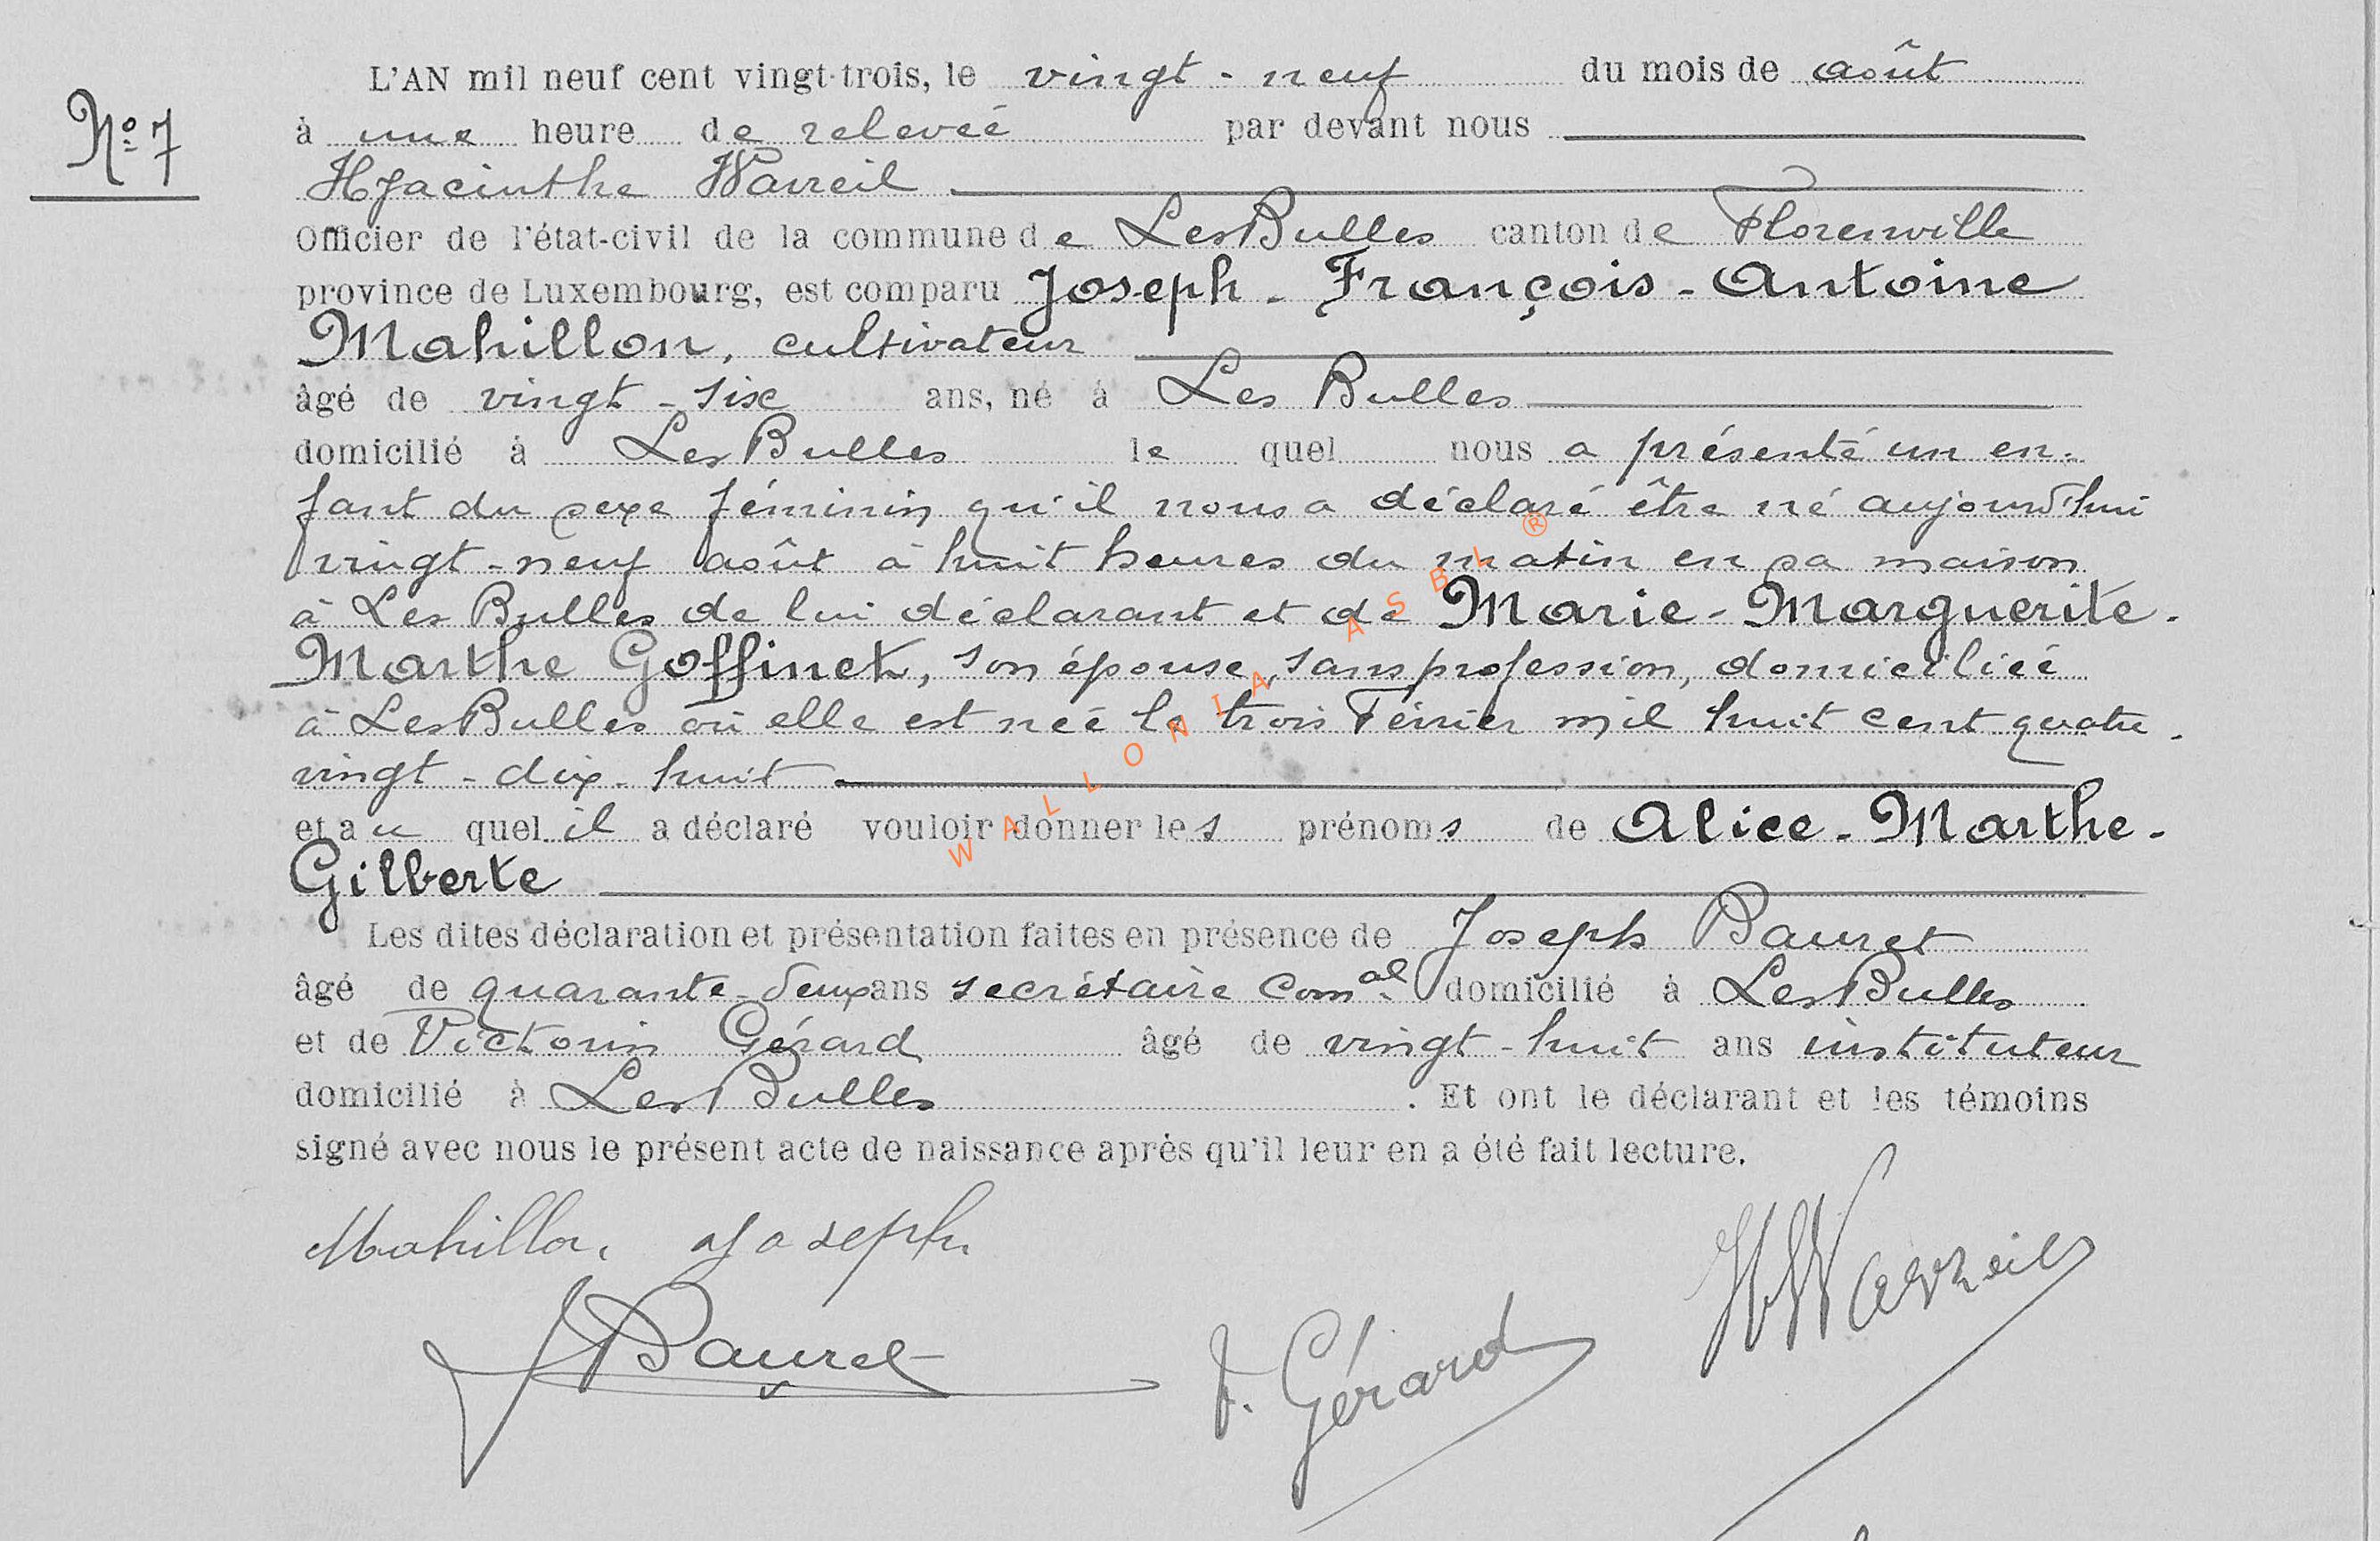 L'AN mil neuf cent vingt-trois, le vingt-neuf du mois de août
N° 7
à une heure de relevée par devant nous
Hyacinthe Wavreil
Officier de l'état-civil de la commune de Les Bulles canton de Florenville
province de Luxembourg, est comparu Joseph-François-Antoine
Mahillon, cultivateur
âgé de vingt-six ans, né à Les Bulles
domicilié à Les Bulles le quel nous a présenté un en-
fant du sexe féminin qu'il nous a déclaré être né aujourd'hui
vingt-neuf août à huit heures du matin en sa maison
à Les Bulles de lui déclarant et de Marie-Marguerite-
Marthe Goffinet, son épouse, sans profession, domiciliée
à Les Bulles où elle est née le trois Février mil huit cent quatre-
vingt-dix-huit
et au quel il a déclaré vouloir donner les prénoms de Alice-Marthe-
Gilberte
Les dites déclaration et présentation faites en présence de Joseph Bauret
âgé de quarante-deux ans secrétaire comal domicilié à Les Bulles
et de Victorin Gérard âgé de vingt-huit ans instituteur
domicilié à Les Bulles . Et ont le déclarant et les témoins
signé avec nous le présent acte de naissance après qu'il leur en a été fait lecture.
Mahillon Joseph
J Bauret
V. Gérard
H Wavreil
WALLONIA ASBL ®